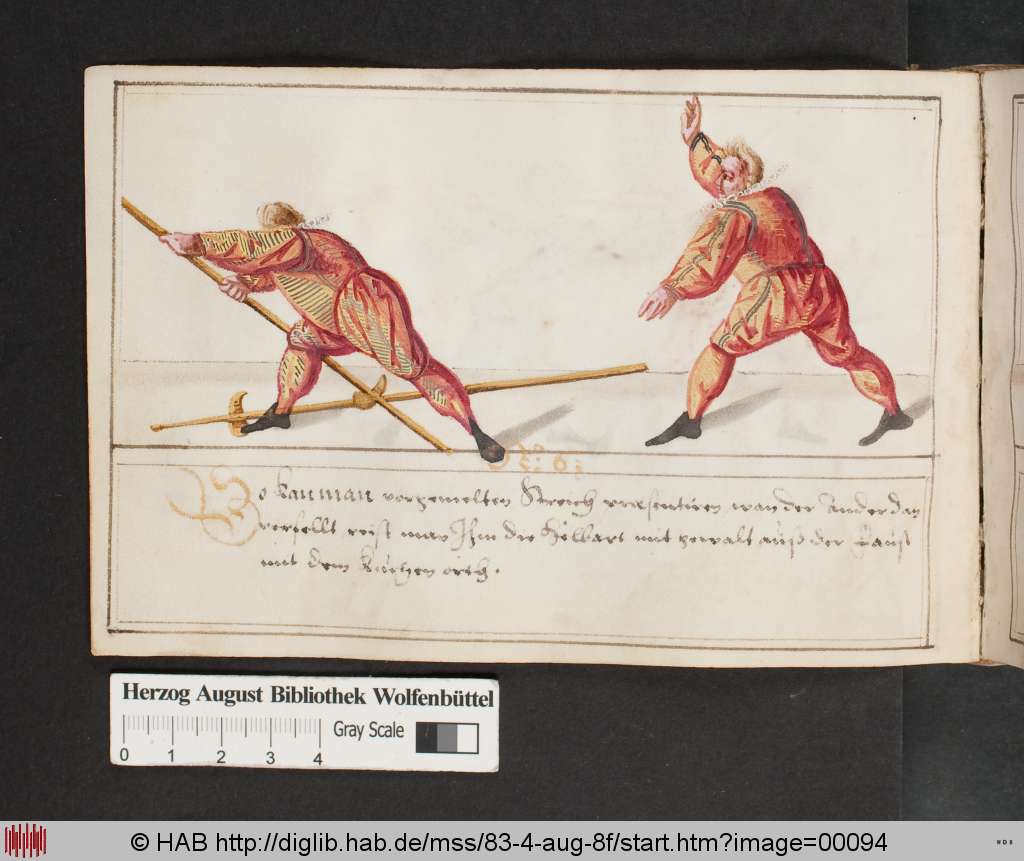 So kan man vorgemelten Streich præsentiren wan der Ander dan
verfellt reist man Ihm die Helbart mit gewalt auß der Faust
mit dem kurtzen orth.
Herzog August Bibliothek Wolfenbüttel
Gray Scale
0 1 2 3 4
© HAB http://diglib.hab.de/mss/83-4-aug-8f/start.htm?image=00094